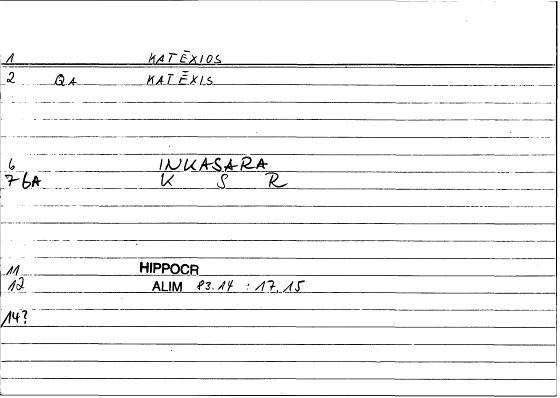 1 KATĒXIOS
2 QA KATĒXIS
6 INKASARA
7 6A K S R
11 HIPPOCR
12 ALIM 83.14 : 17.15
14?